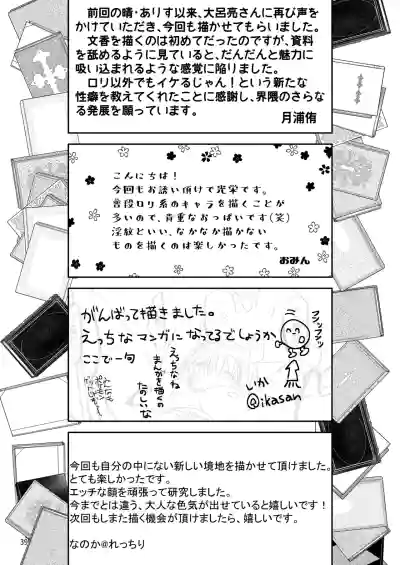 前回の晴・ありす以来、大呂亮さんに再び声を
かけていただき、今回も描かせてもらいました。
文香を描くのは初めてだったのですが、資料
を舐めるように見ていると、だんだんと魅力に
吸い込まれるような感覚に陥りました。
ロリ以外でもイケるじゃん！という新たな
性癖を教えてくれたことに感謝し、界隈のさらな
る発展を願っています。
月浦侑
こんにちは！
今回もお誘い頂けて光栄です。
普段ロリ系のキャラを描くことが
多いので、貴重なおっぱいです(笑)
淫紋といい、なかなか描かない
ものを描くのは楽しかったです。
おみん
がんばって描きました。
えっちな マンガに なってるでしょうか
ここで一句
えっちなね
まんがを描くの
たのしいな
いか
@ikasan
今回も自分の中にない新しい境地を描かせて頂けました。
とても楽しかったです。
エッチな顔を頑張って研究しました。
今までとは違う、大人な色気が出せていると嬉しいです！
次回もしまた描く機会が頂けましたら、嬉しいです。
なのか@れっちり
39